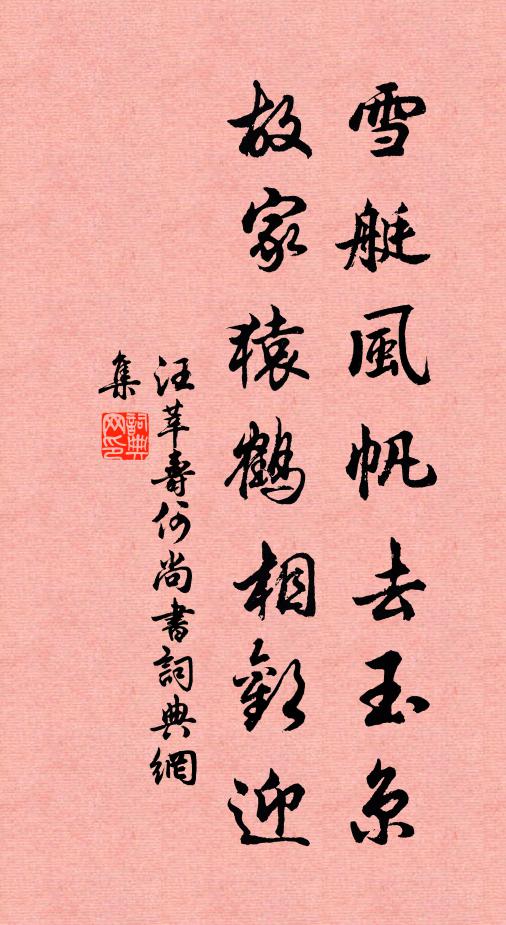 雪艇風帆去玉京
故家猿鶴相歡迎
汪莘壽何尚書詞典網
集
詞典網印